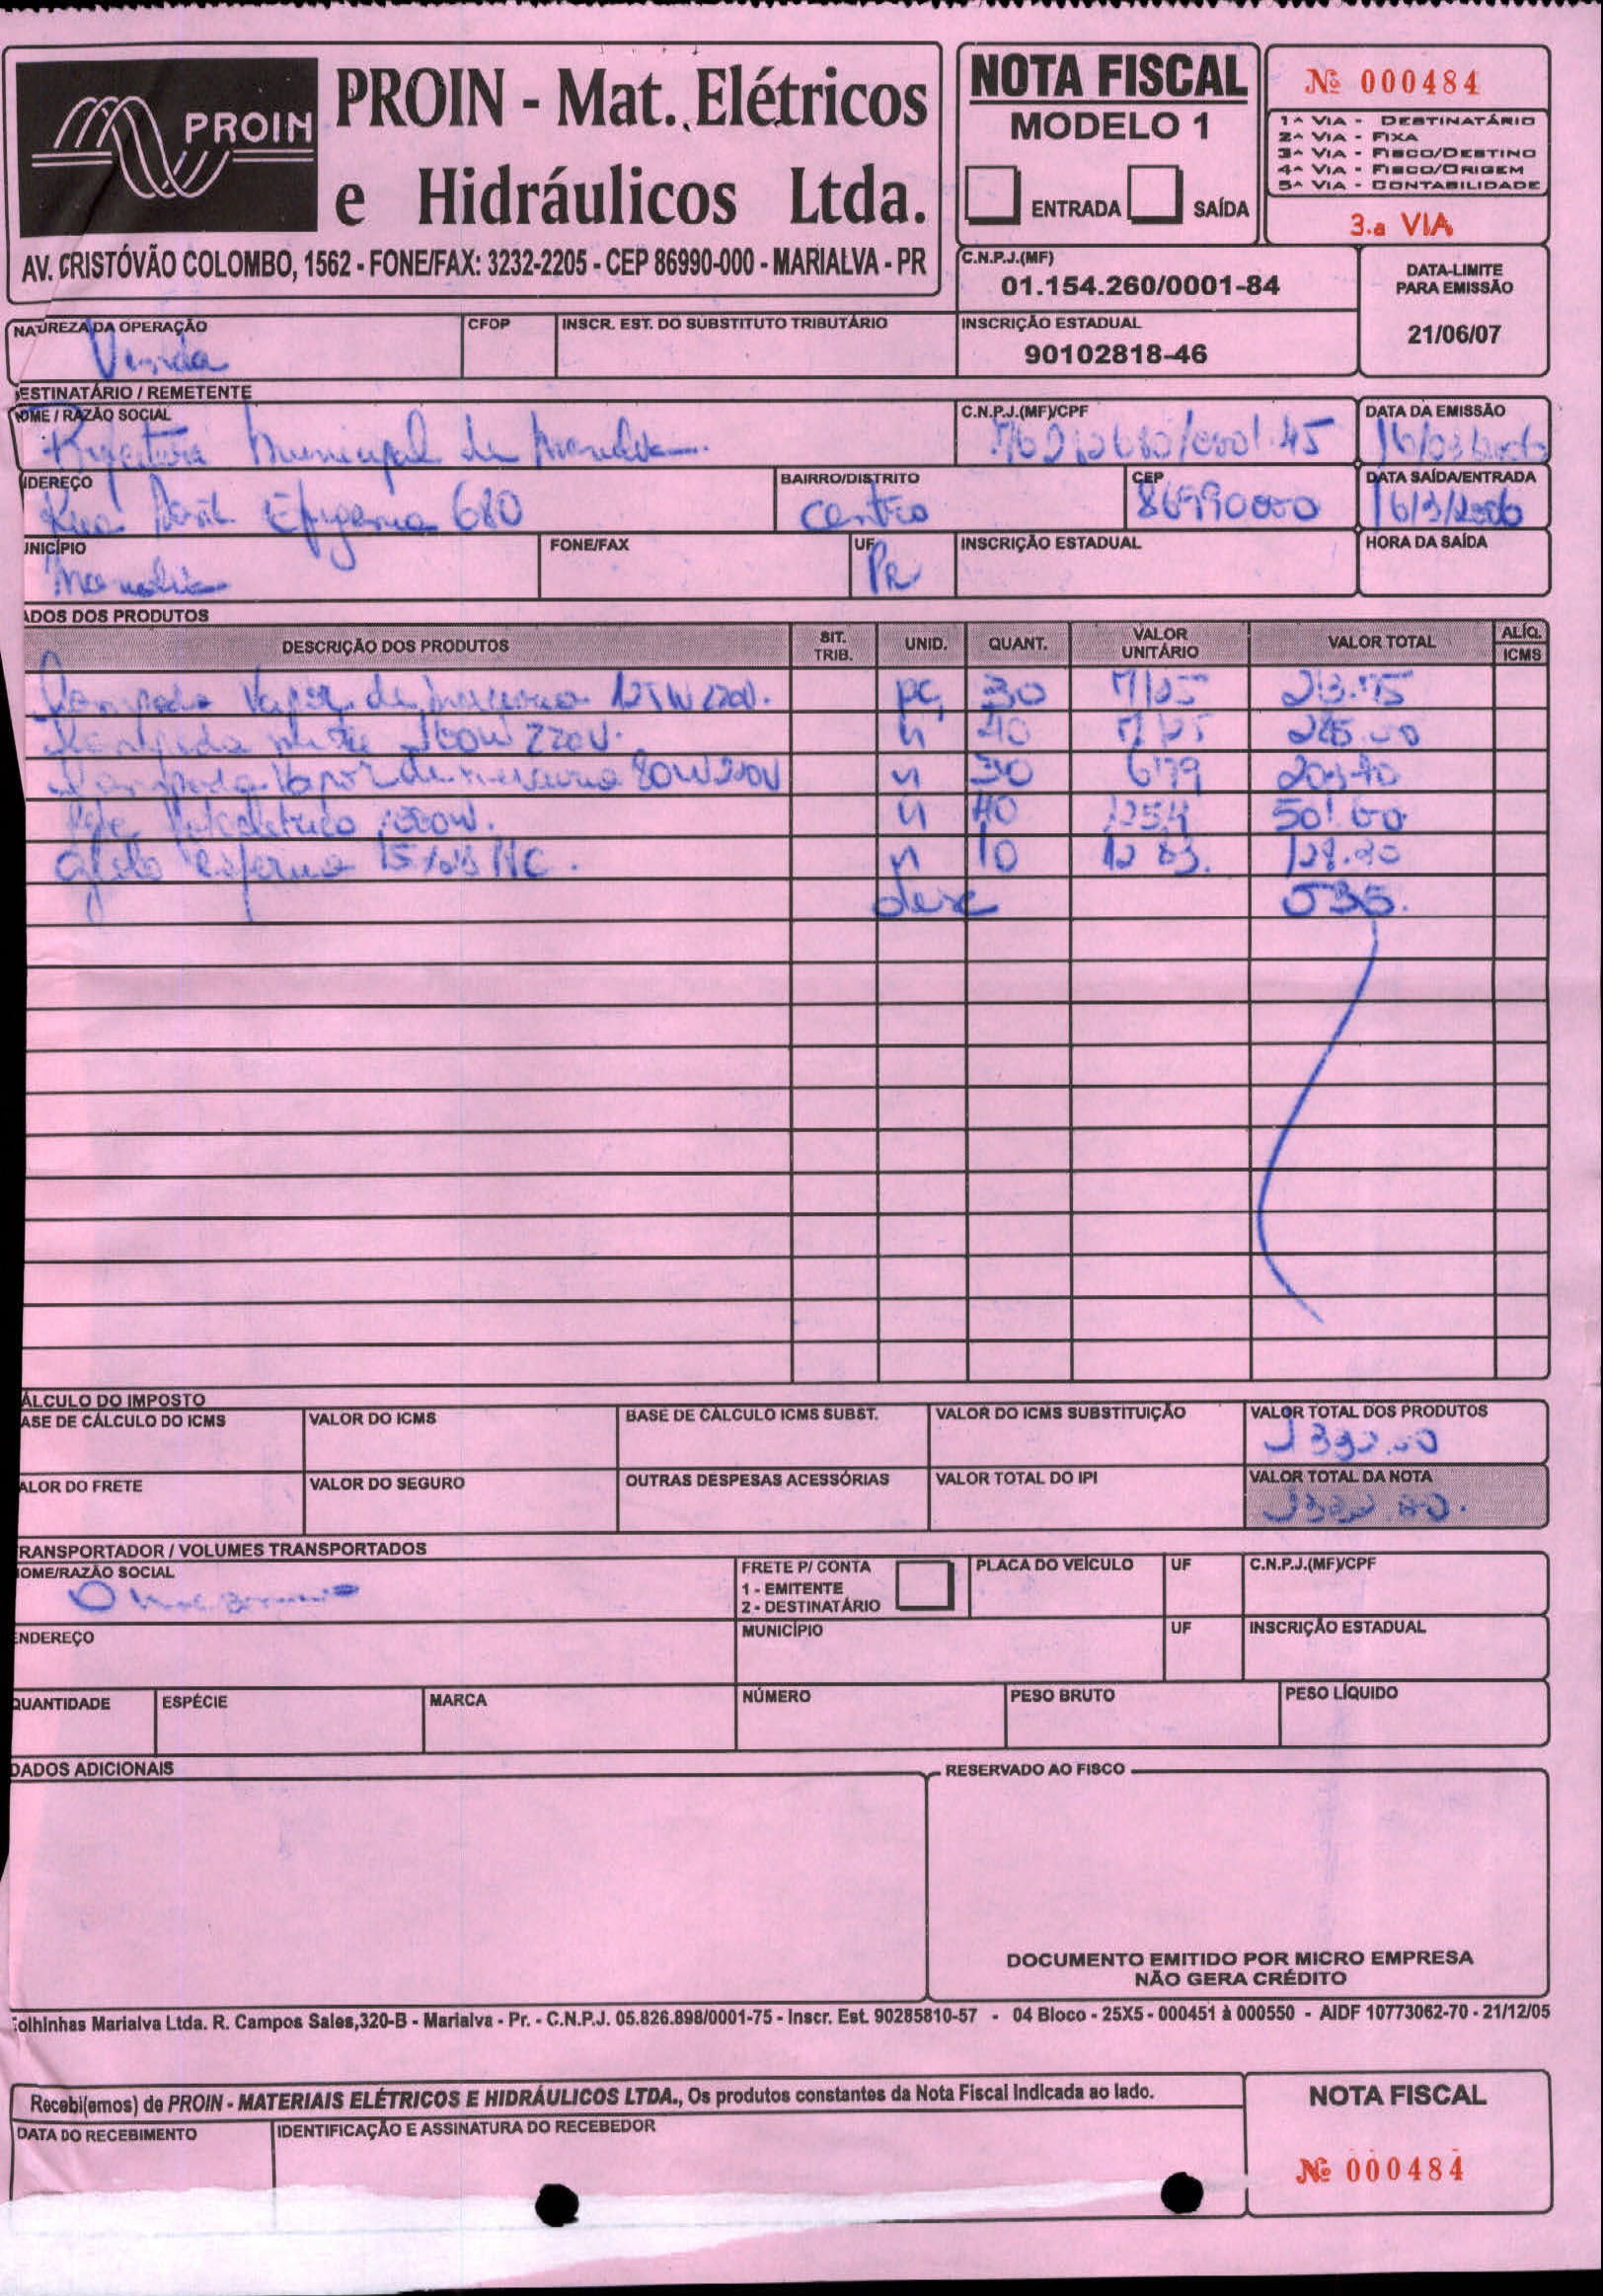 PROIN
PROIN - Mat. Elétricos
e Hidráulicos Ltda.
AV. CRISTÓVÃO COLOMBO, 1562 - FONE/FAX: 3232-2205 - CEP 86990-000 - MARIALVA - PR
NOTA FISCAL
MODELO 1
ENTRADA SAÍDA
Nº 000484
1ª VIA - DESTINATÁRIO
2ª VIA - FIXA
3ª VIA - FISCO/DESTINO
4ª VIA - FISCO/ORIGEM
5ª VIA - CONTABILIDADE
3.a VIA
C.N.P.J.(MF)
01.154.260/0001-84
DATA-LIMITE
PARA EMISSÃO
21/06/07
NATUREZA DA OPERAÇÃO CFOP INSCR. EST. DO SUBSTITUTO TRIBUTÁRIO INSCRIÇÃO ESTADUAL
Venda 90102818-46
ESTINATÁRIO / REMETENTE
OME / RAZÃO SOCIAL C.N.P.J.(MF)/CPF DATA DA EMISSÃO
Municipal de
NDEREÇO BAIRRO/DISTRITO CEP DATA SAÍDA/ENTRADA
Rua 680 Centro 86990000 16/3/2006
UNICÍPIO FONE/FAX UF INSCRIÇÃO ESTADUAL HORA DA SAÍDA
PR
ADOS DOS PRODUTOS
DESCRIÇÃO DOS PRODUTOS SIT. TRIB. UNID. QUANT. VALOR UNITÁRIO VALOR TOTAL ALÍQ. ICMS
Lampada Vapor de mercurio 125W 220V. pç 30
Lampada 160W 220V. 40
Lampada Vapor de mercurio 80W 30 679
1000W. 40 1254 501.60
Globo 10 12 83.
desc 535.
ÁLCULO DO IMPOSTO
ASE DE CÁLCULO DO ICMS VALOR DO ICMS BASE DE CÁLCULO ICMS SUBST. VALOR DO ICMS SUBSTITUIÇÃO VALOR TOTAL DOS PRODUTOS
ALOR DO FRETE VALOR DO SEGURO OUTRAS DESPESAS ACESSÓRIAS VALOR TOTAL DO IPI VALOR TOTAL DA NOTA
RANSPORTADOR / VOLUMES TRANSPORTADOS
OME/RAZÃO SOCIAL FRETE P/ CONTA PLACA DO VEÍCULO UF C.N.P.J.(MF)/CPF
1 - EMITENTE
2 - DESTINATÁRIO
O
NDEREÇO MUNICÍPIO UF INSCRIÇÃO ESTADUAL
QUANTIDADE ESPÉCIE MARCA NÚMERO PESO BRUTO PESO LÍQUIDO
DADOS ADICIONAIS RESERVADO AO FISCO
DOCUMENTO EMITIDO POR MICRO EMPRESA
NÃO GERA CRÉDITO
olhinhas Marialva Ltda. R. Campos Sales,320-B - Marialva - Pr. - C.N.P.J. 05.826.898/0001-75 - Inscr. Est. 90285810-57 - 04 Bloco - 25X5 - 000451 à 000550 - AIDF 10773062-70 - 21/12/05
Recebi(emos) de PROIN - MATERIAIS ELÉTRICOS E HIDRÁULICOS LTDA., Os produtos constantes da Nota Fiscal Indicada ao lado.
DATA DO RECEBIMENTO IDENTIFICAÇÃO E ASSINATURA DO RECEBEDOR
NOTA FISCAL
Nº 000484